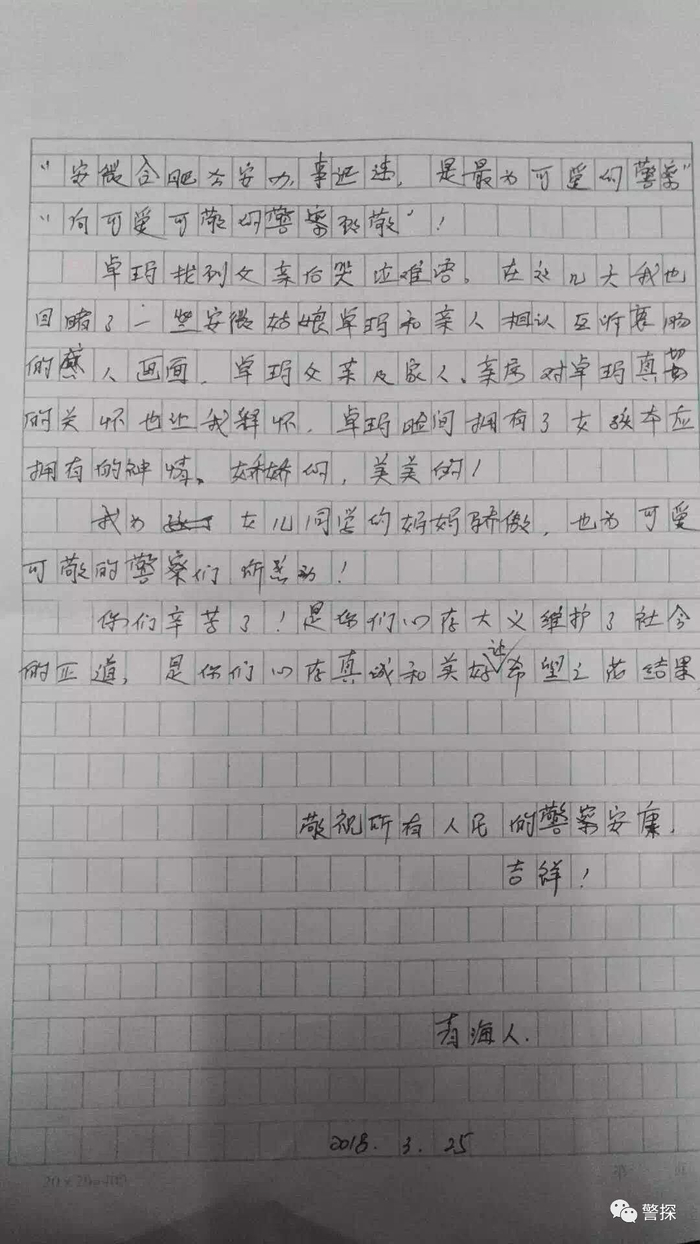 “安微合肥公安办事迅速，是最为可爱的警察”
“向可爱可敬的警察致敬”！
卓玛找到父亲后哭泣难语。在这几天我也
目睹了一些安微姑娘卓玛和亲人相认互诉衷肠
的感人画面，卓玛父亲及家人、亲房对卓玛真挚
的关怀也让我释怀，卓玛瞬间拥有了女孩本应
拥有的神情。娇娇的，美美的！
我为女儿同学的妈妈骄傲，也为可爱
可敬的警察们所感动！
你们辛苦了！是你们心存大义维护了社会
的正道，是你们心存真诚和美好让希望之花结果
敬祝所有人民的警察安康，
吉祥！
青海人.
2018.3.25
20×25=500
第 页
警探